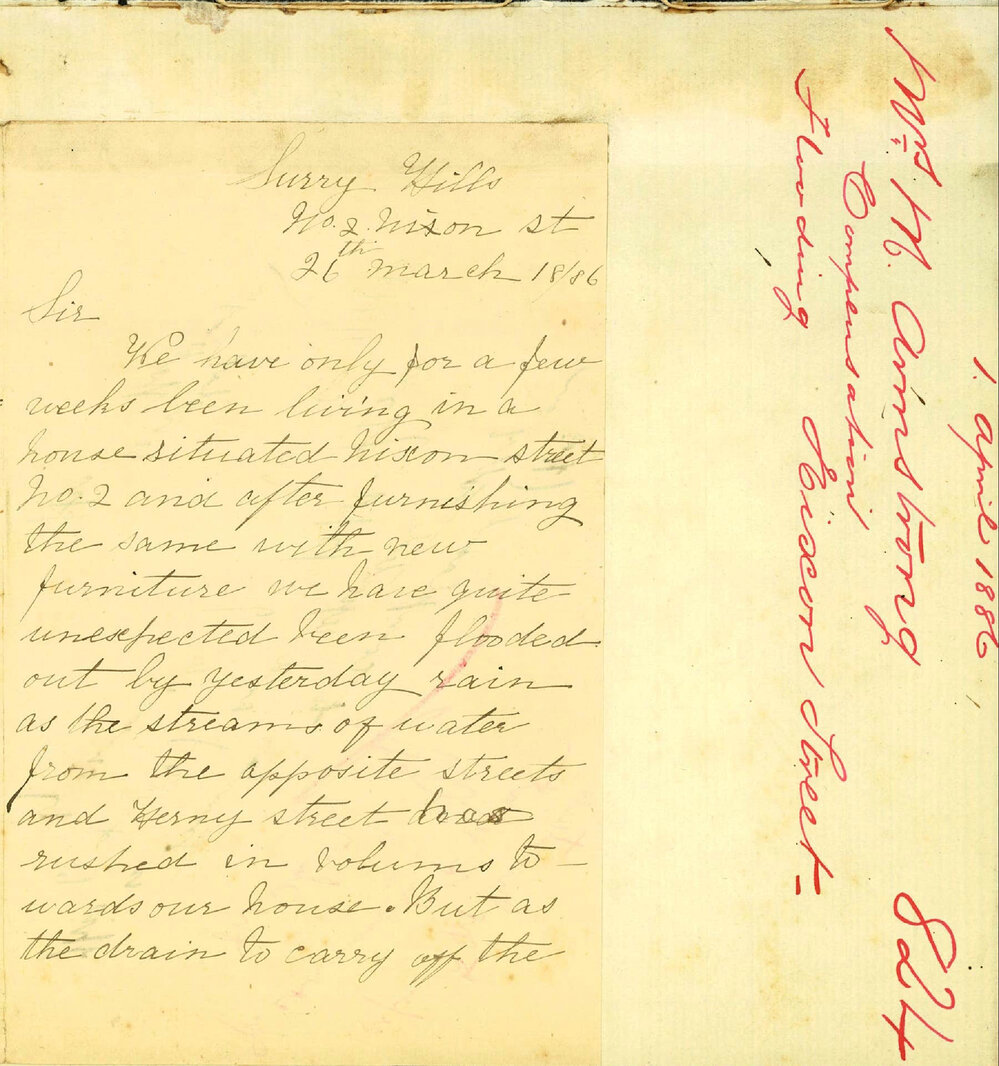 Surry Hills
No. 2. Nixon st
26th march 18/86
Sir
We have only for a few
weeks been living in a
house situated Nixon street
No. 2 and after furnishing
the same with new
furniture we have quite
unexpected been flooded
out by yesterday rain
as the streams of water
from the opposite streets
and Herny street has
rushed in volums to-
wards our house. But as
the drain to carry off the
1. April 1886
M. Armstrong 824
Compensation
Flooding Nixon Street-